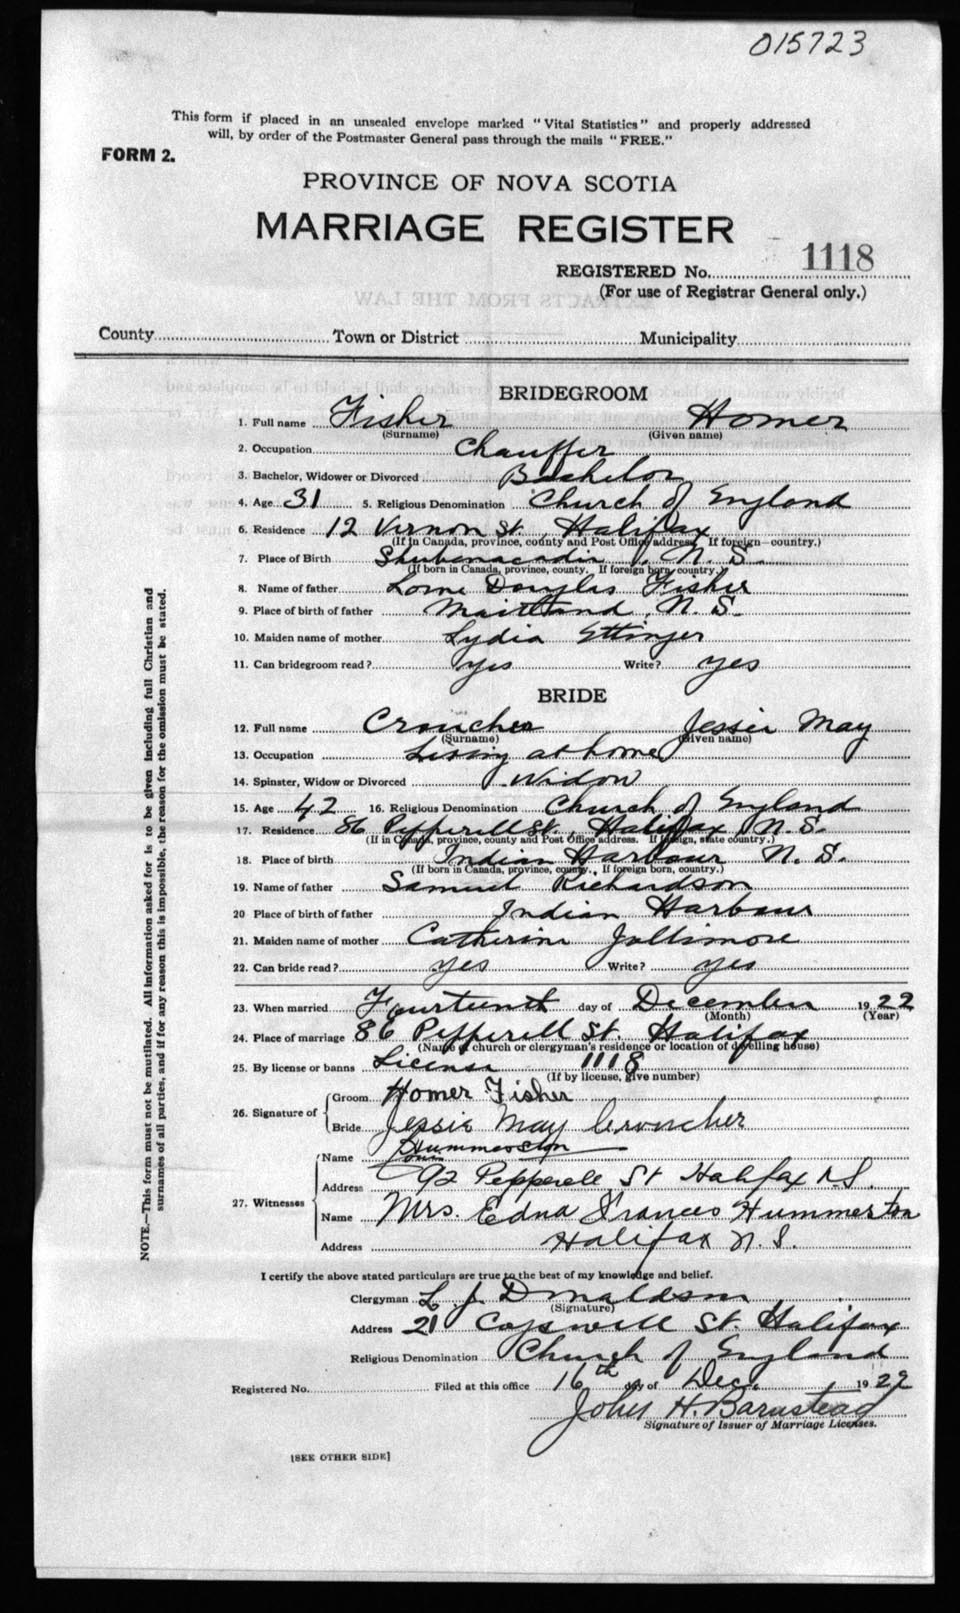 015723
This form if placed in an unsealed envelope marked "Vital Statistics" and properly addressed
will, by order of the Postmaster General pass through the mails "FREE."
FORM 2.
PROVINCE OF NOVA SCOTIA
MARRIAGE REGISTER
REGISTERED No. 1118
(For use of Registrar General only.)
County Town or District Municipality
BRIDEGROOM
1. Full name Fisher Homer
(Surname) (Given name)
2. Occupation Chauffer
3. Bachelor, Widower or Divorced Bachelor
4. Age 31 5. Religious Denomination Church of England
6. Residence 12 Vernon St., Halifax
(If in Canada, province, county and Post Office address. If foreign country.)
7. Place of Birth Shubenacadie, N. S.
(If born in Canada, province, county. If foreign born, country.)
8. Name of father Lorne Douglas Fisher
9. Place of birth of father Maitland, N. S.
10. Maiden name of mother Lydia Ettinger
11. Can bridegroom read? yes Write? yes
BRIDE
12. Full name Croucher Jessie May
(Surname) (Given name)
13. Occupation Living at home
14. Spinster, Widow or Divorced Widow
15. Age 42 16. Religious Denomination Church of England
17. Residence 86 Pepperell St., Halifax, N. S.
(If in Canada, province, county and Post Office address. If foreign, state country.)
18. Place of birth Indian Harbour N. S.
(If born in Canada, province, county. If foreign born, country.)
19. Name of father Samuel Richardson
20 Place of birth of father Indian Harbour
21. Maiden name of mother Catherine Jollimore
22. Can bride read? yes Write? yes
23. When married Fourteenth day of December 1922
(Month) (Year)
24. Place of marriage 86 Pepperell St. Halifax
(Name of church or clergyman's residence or location of dwelling house)
25. By license or banns License 1118
(If by license, give number)
26. Signature of Groom Homer Fisher
Bride Jessie May Croucher
27. Witnesses Name Hummerston
Address 92 Pepperell St Halifax N.S.
Name Mrs. Edna Frances Hummerston
Address Halifax N. S.
I certify the above stated particulars are true to the best of my knowledge and belief.
Clergyman L. J. Donaldson
(Signature)
Address 21 Cogswell St. Halifax
Religious Denomination Church of England
Registered No. Filed at this office 16th day of Dec. 1922
John H. Barnstead
Signature of Issuer of Marriage Licenses.
[SEE OTHER SIDE]
NOTE.—This form must not be mutilated. All information asked for is to be given including full Christian and
surnames of all parties, and if for any reason this is impossible, the reason for the omission must be stated.